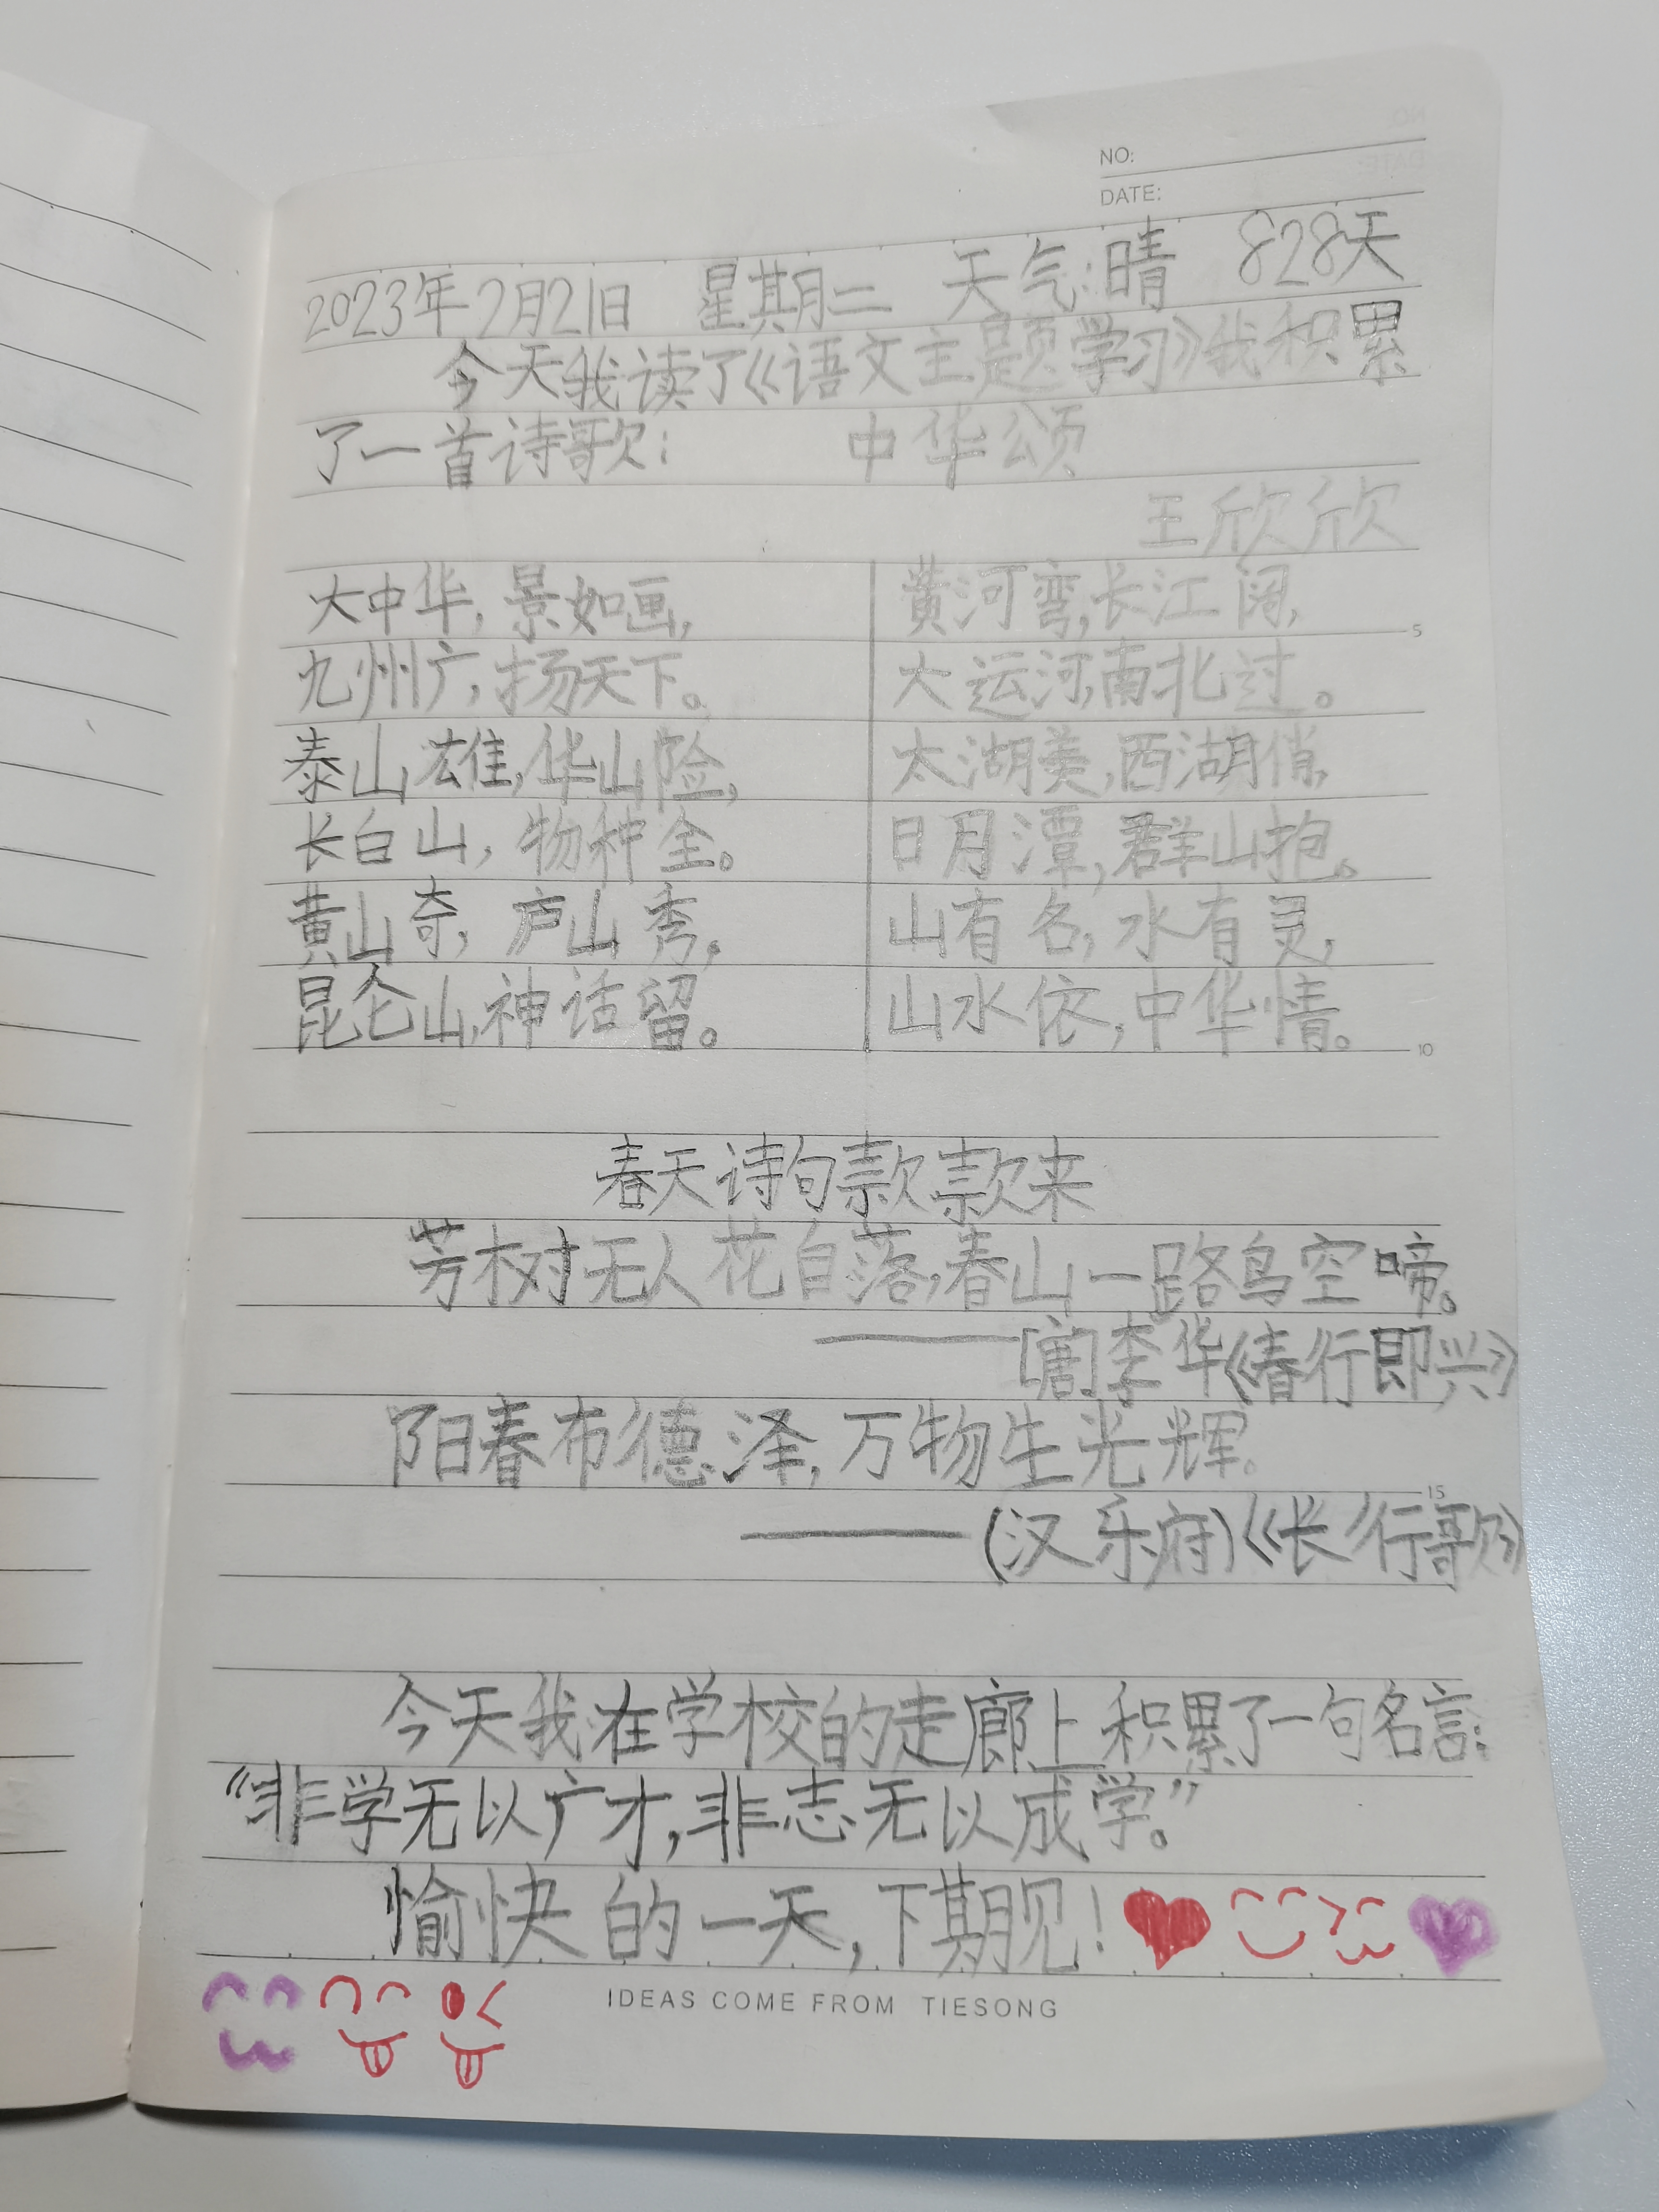 NO:
DATE:
2023年2月21日 星期二 天气:晴 828天
今天我读了《语文主题学习》我积累
了一首诗歌: 中华颂
王欣欣
大中华,景如画,
九州广,扬天下。
泰山雄,华山险,
长白山,物种全。
黄山奇,庐山秀,
昆仑山,神话留。
黄河弯,长江阔,
大运河,南北过。
太湖美,西湖俏,
日月潭,群山抱。
山有名,水有灵,
山水依,中华情。
5
10
春天诗句款款来
芳树无人花自落,春山一路鸟空啼。
——[唐]李华《春行即兴》
阳春布德泽,万物生光辉。
15
——(汉乐府)《长行歌》
今天我在学校的走廊上积累了一句名言:
“非学无以广才,非志无以成学。”
愉快的一天,下期见!
IDEAS COME FROM TIESONG